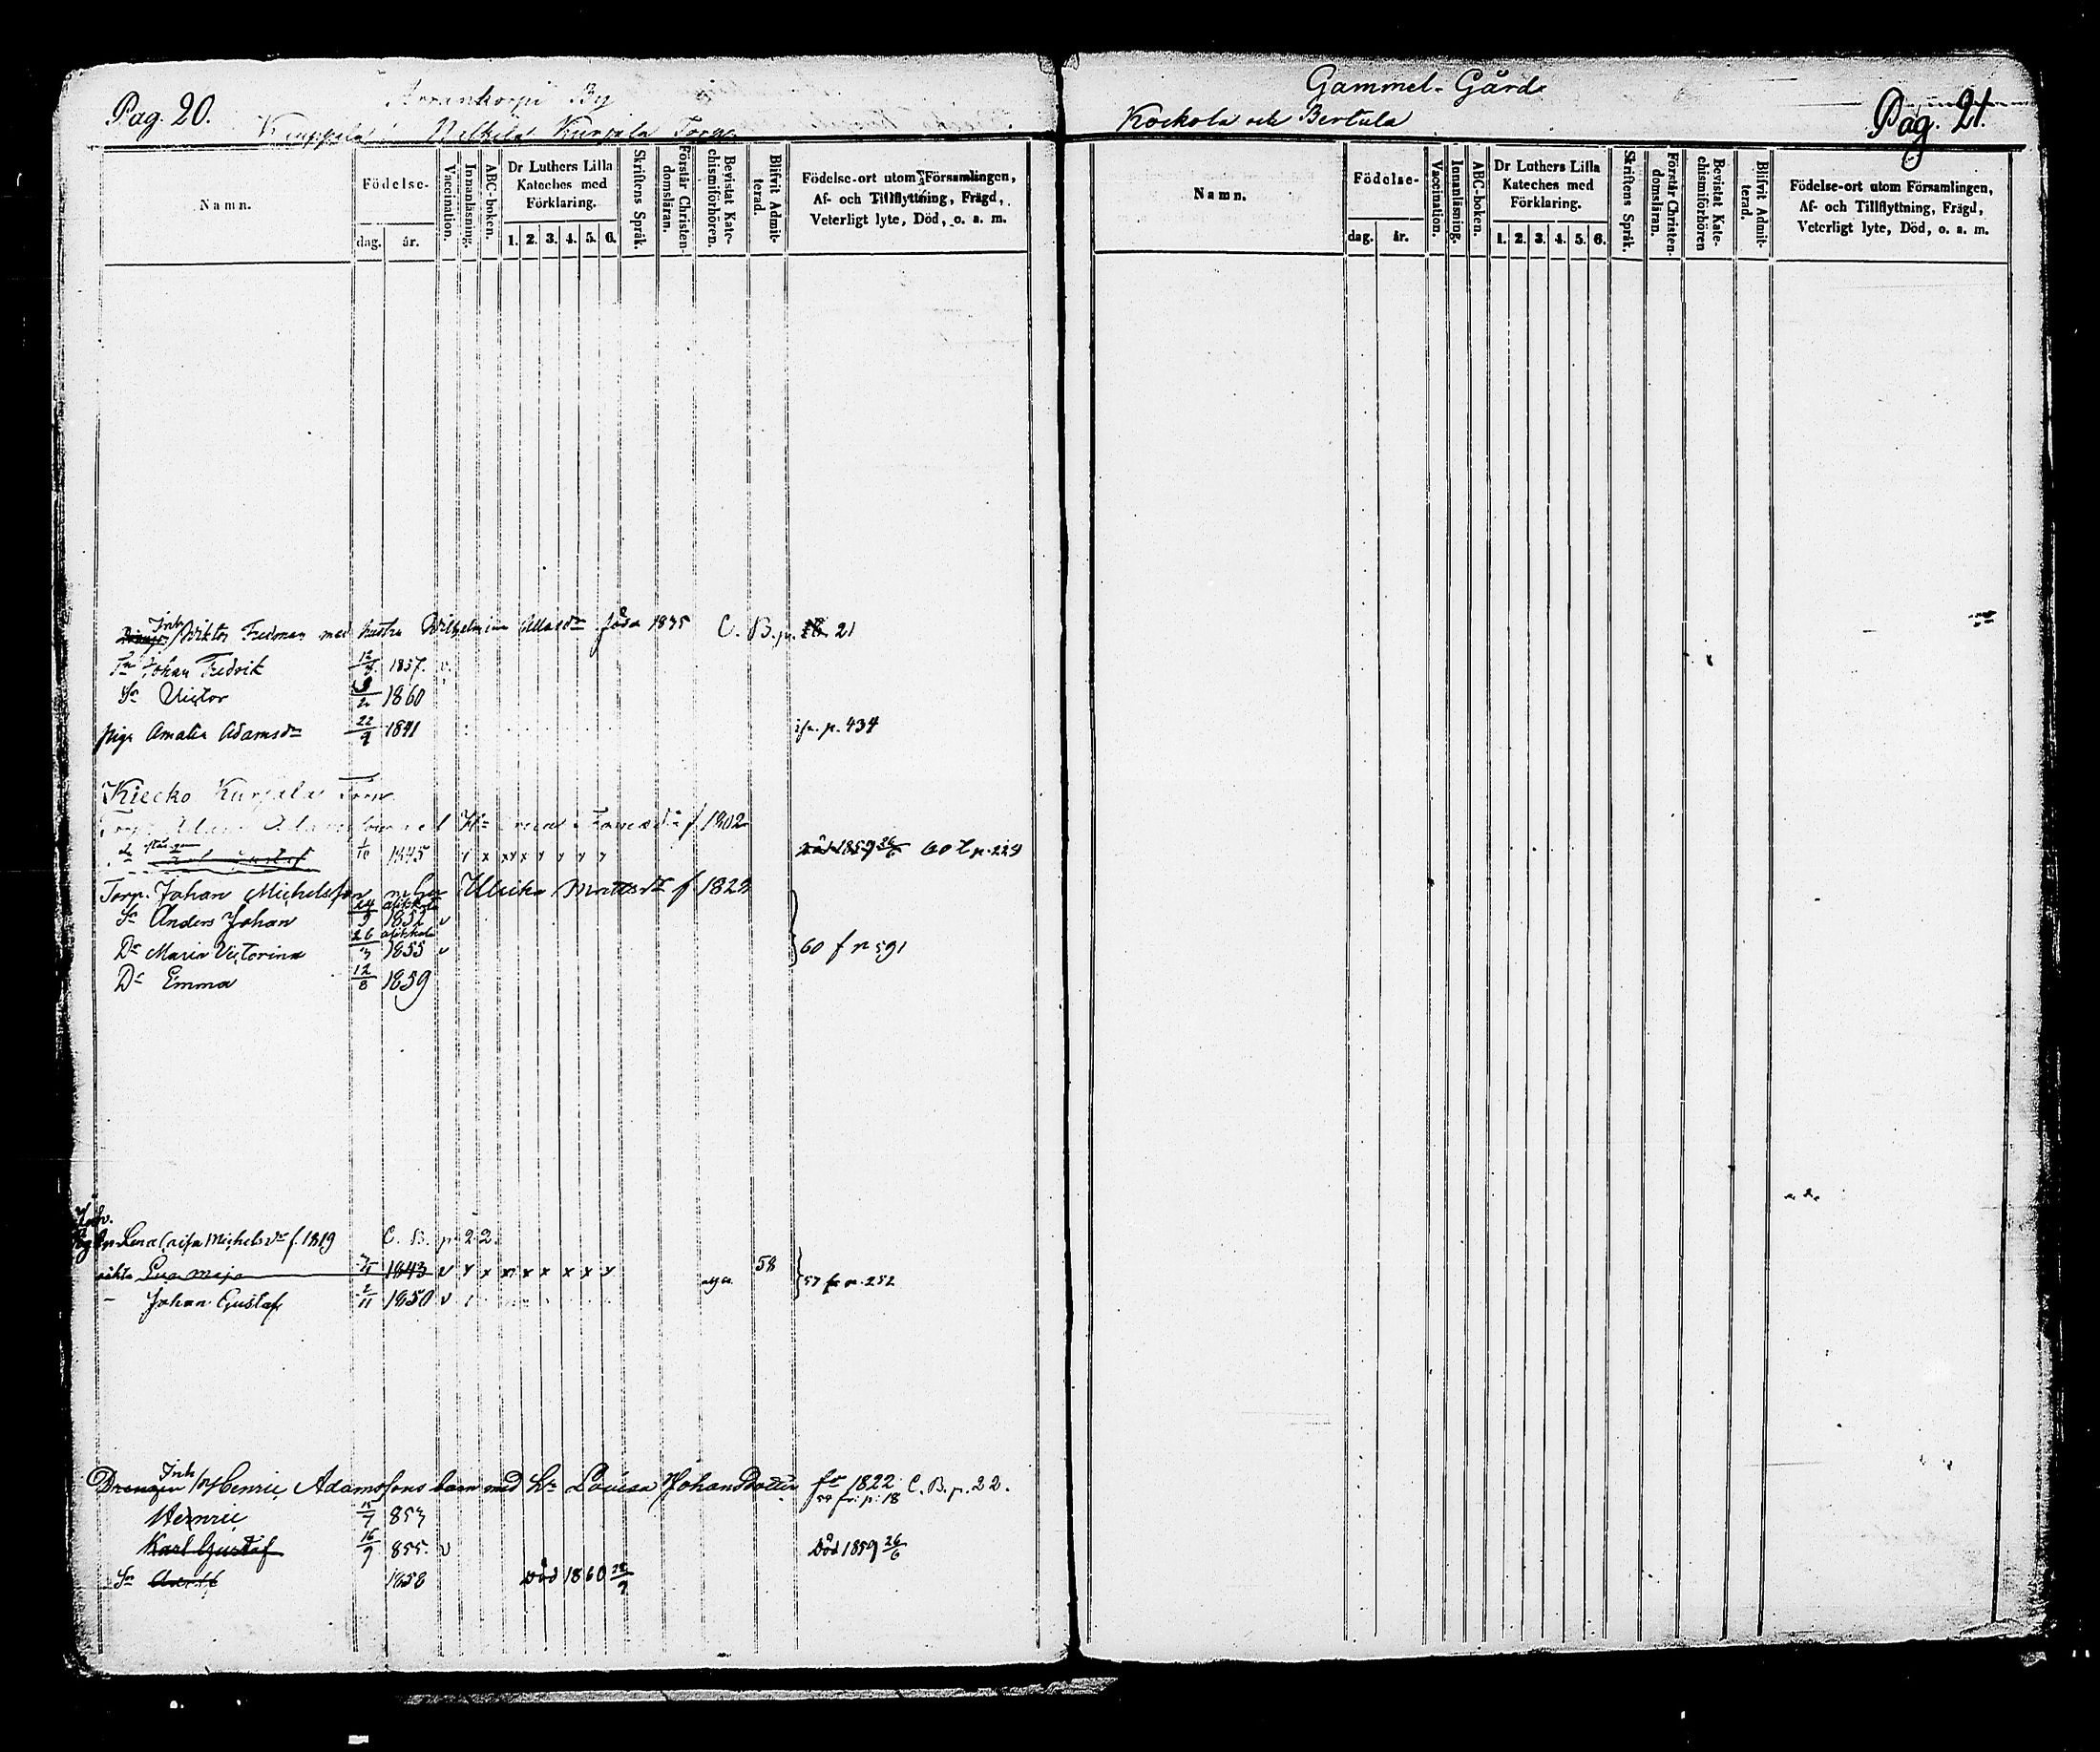 Pag. 20.
Arrankorpi By
Kurjala Torp
Namn.
Födelse-
dag. år.
Vaccination.
Innanläsning.
ABC-boken.
Dr Luthers Lilla Kateches med Förklaring.
1. 2. 3. 4. 5. 6.
Skriftens Språk.
Förstår Christendomsläran.
Bevistat Katechismiförhören.
Blifvit Admitterad.
Födelse-ort utom Församlingen,
Af- och Tillflyttning, Frägd,
Veterligt lyte, Död, o. a. m.
Inh Wiktor Fredman med hustru Wilhelmina född 1835 C. B. p. 21
Sn Johan Fredrik 12 1857. v.
Sn Victor 9/2 1860
piga Amalia Adamsdr 22/9 1841 p. 434
Kiecko Kurjala Torp
f 1802
1/10 1845 v x x x x y y y y Död 1859 26/6 60 t p. 229
Torp. Johan Michelsson m hu Ulrika Mattsdr f 1829
Sn Anders Johan 24/9 1852 v
Dr Maria Victorina 26/3 1855 v 60 f p 591
Dr Emma 12/8 1859
Lena Cajsa Michelsdr f. 1819 C. B. p. 22.
oäkta Eva Maja 1843 v x x x x x x x y 58 57 fr p. 252
- Johan Gustaf 2/11 1850 v
Drengen Inh Henric Adamssons barn med h. Lovisa JohansDotter fr 1822 C. B. p. 22.
54 fr: p: 18
Henric 15/7 853
Karl Gustaf 16/9 855. v Död 1859 26/6
Sn Adolf 1858 död 1860 28/9
Gammel-Gård
Kockola och Bertula
Pag. 21.
Namn.
Födelse-
dag. år.
Vaccination.
Innanläsning.
ABC-boken.
Dr Luthers Lilla Kateches med Förklaring.
1. 2. 3. 4. 5. 6.
Skriftens Språk.
Förstår Christendomsläran.
Bevistat Katechismiförhören
Blifvit Admitterad.
Födelse-ort utom Församlingen,
Af- och Tillflyttning, Frägd,
Veterligt lyte, Död, o. a. m.